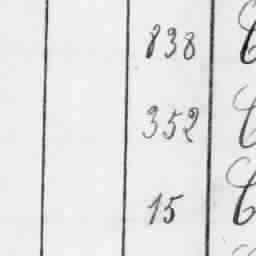 838
352
15